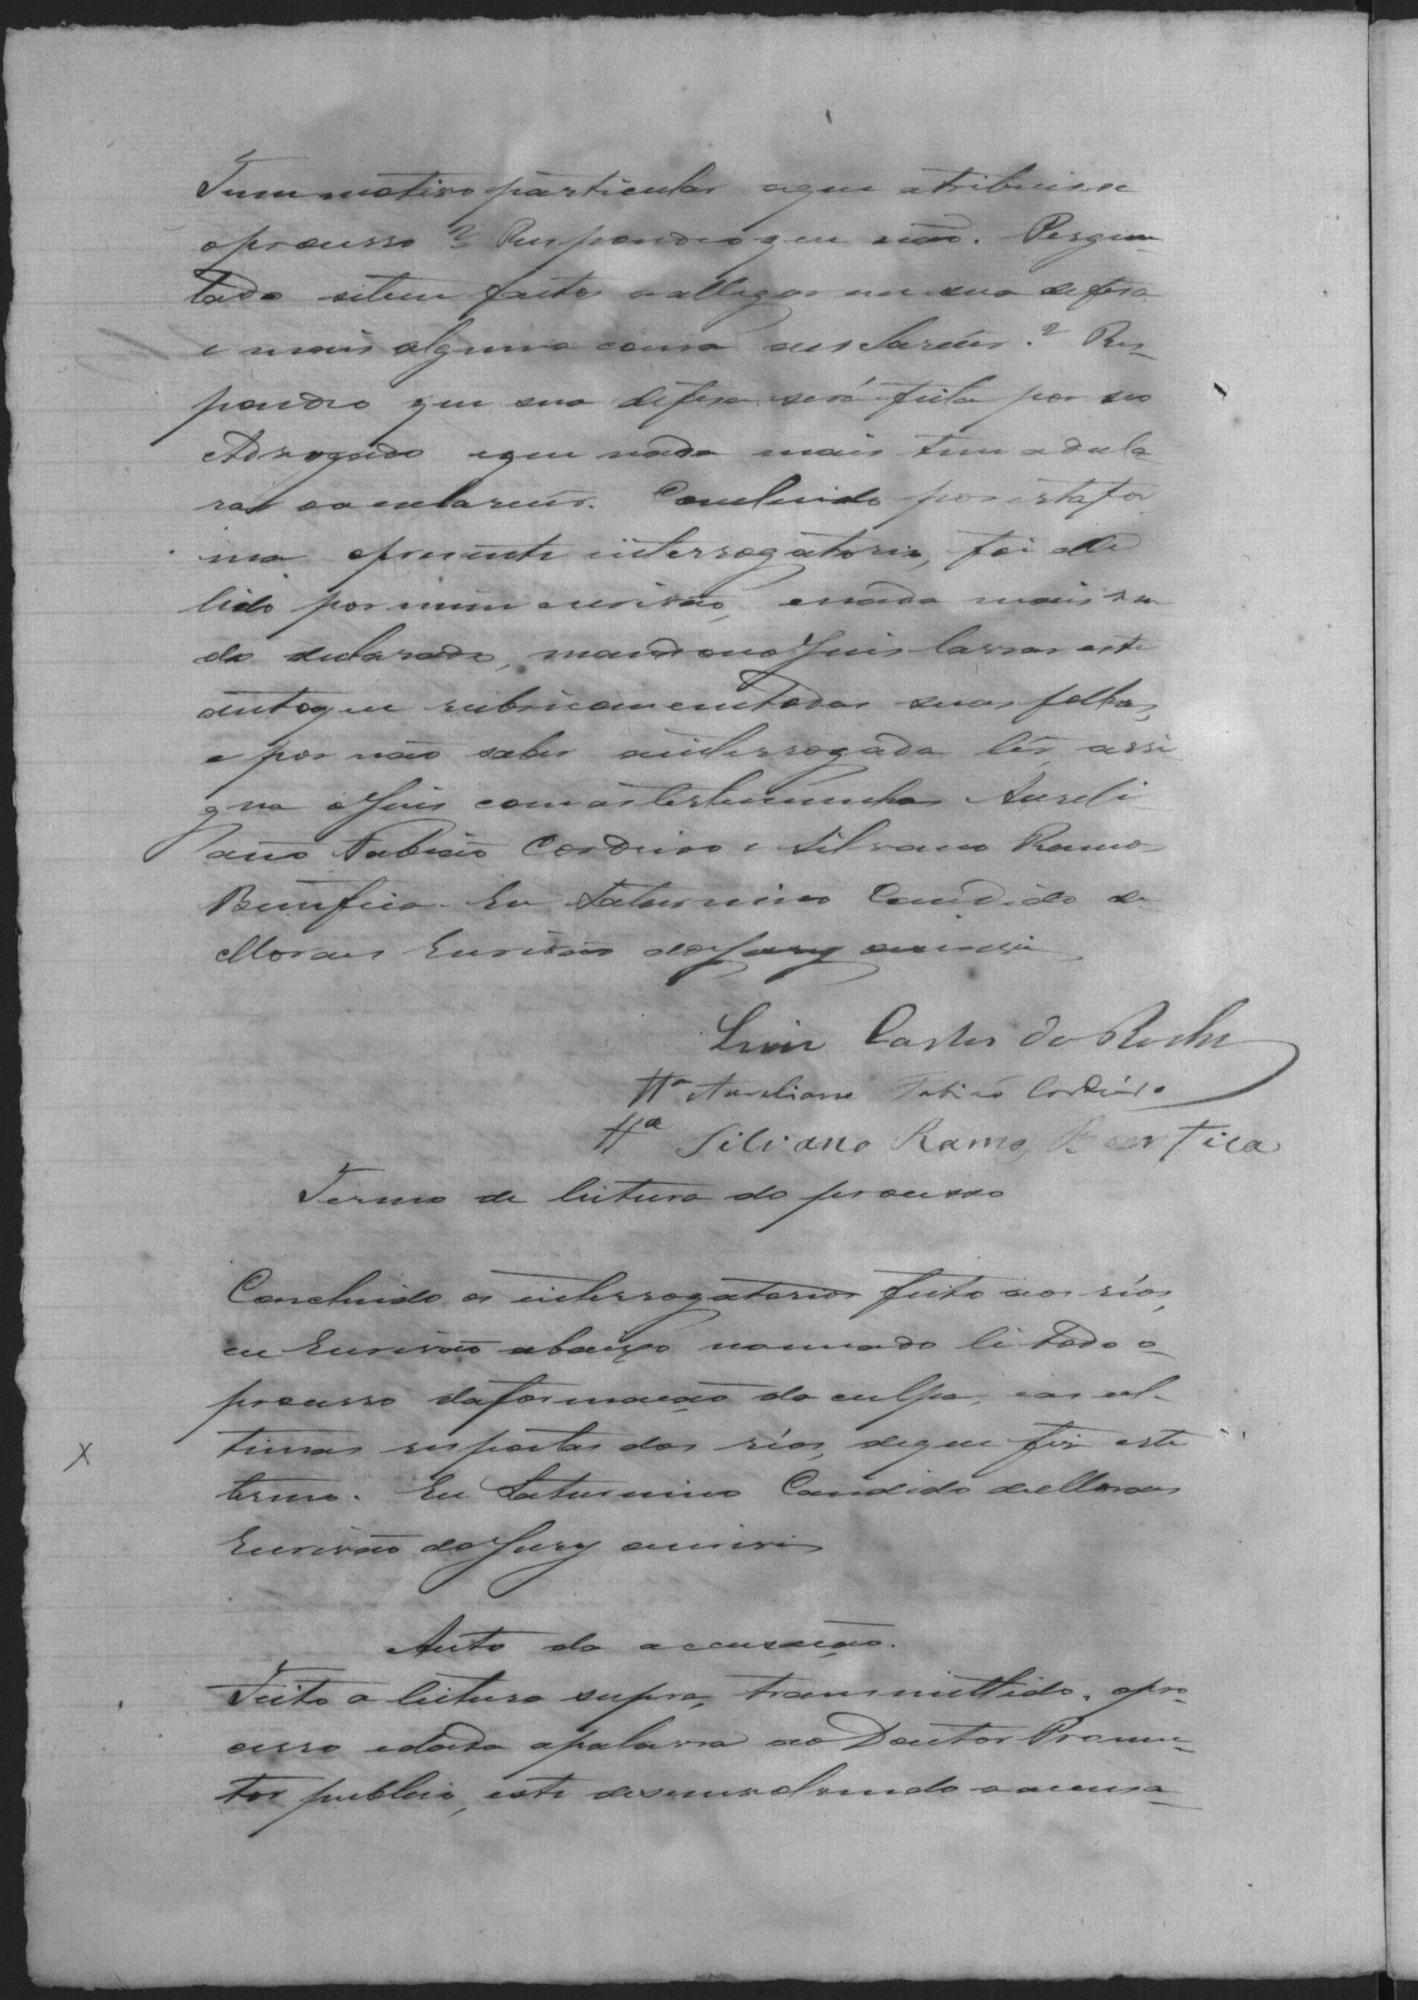 Tem motivo particular a que atribuisse
o processo? Respondeo que não. Pergun-
tado si tem factos a allegar em sua defesa
e mais alguma cousa a esclarecer? Res-
pondeo que sua defesa será feita por seo
Advogado e que nada mais tem a decla-
rar ou esclarecer. Concluido por esta for
ma o presente interrogatorio, foi elle
lido por mim escrivão, e nada mais sen
do declarado, mandou o Juis lavrar este
auto que rubricam em todas suas folhas,
e por não saber a interrogada lêr, assi
gna o Juis com as testemunhas Aureli
ano Fabião Cordeiro e Silvano Ramos
Benfica. Eu Saturnino Candido de
Moraes Escrivão do Jury escrevi
Luiz Carlos da Rocha
Tta Aureliano Fabião Cordeiro
Tta Silvano Ramos Benfica
Termo de leitura do processo
Concluido os interrogatorios feito aos réos,
eu Escrivão abaixo nomeado li todo o
processo da formação da culpa, e as ul-
timas respostas dos réos, de que fiz este
termo. Eu Saturnino Candido de Moraes
Escrivão do Jury escrevi
Auto da accusação.
Feito a leitura supra, transmittido, o pro-
cesso e dada a palavra ao Doutor Promo-
tor publico, este desenvolvendo a accusa-